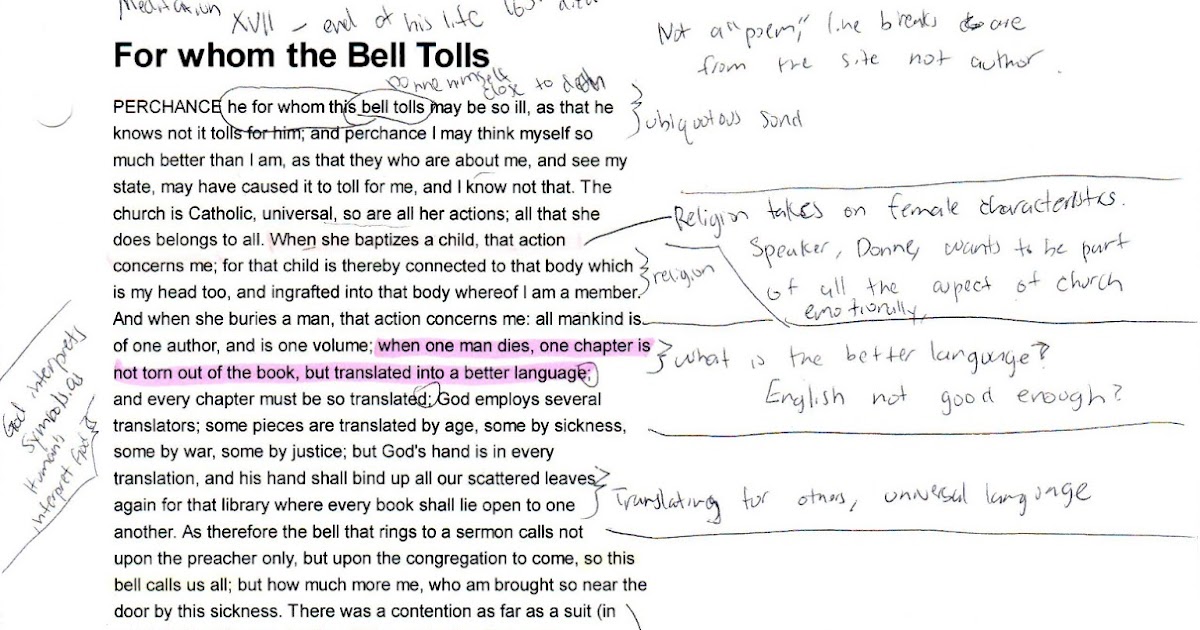 Meditation
XVII – end of his life
Not a "poem," line breaks are
from the site not author.
For whom the Bell Tolls
Donne himself
close to death
PERCHANCE he for whom this bell tolls may be so ill, as that he
knows not it tolls for him; and perchance I may think myself so
much better than I am, as that they who are about me, and see my
state, may have caused it to toll for me, and I know not that. The
church is Catholic, universal, so are all her actions; all that she
does belongs to all. When she baptizes a child, that action
concerns me; for that child is thereby connected to that body which
is my head too, and ingrafted into that body whereof I am a member.
And when she buries a man, that action concerns me: all mankind is
of one author, and is one volume; when one man dies, one chapter is
not torn out of the book, but translated into a better language;
and every chapter must be so translated; God employs several
translators; some pieces are translated by age, some by sickness,
some by war, some by justice; but God's hand is in every
translation, and his hand shall bind up all our scattered leaves
again for that library where every book shall lie open to one
another. As therefore the bell that rings to a sermon calls not
upon the preacher only, but upon the congregation to come, so this
bell calls us all; but how much more me, who am brought so near the
door by this sickness. There was a contention as far as a suit (in
ubiquotous sond
Religion takes on female characteristics.
Speaker, Donne, wants to be part
of all the aspect of church
emotionally,
religion
what is the better language?
English not good enough?
Translating for others, universal language
God interprets
Symbols as
Humans
interpret God